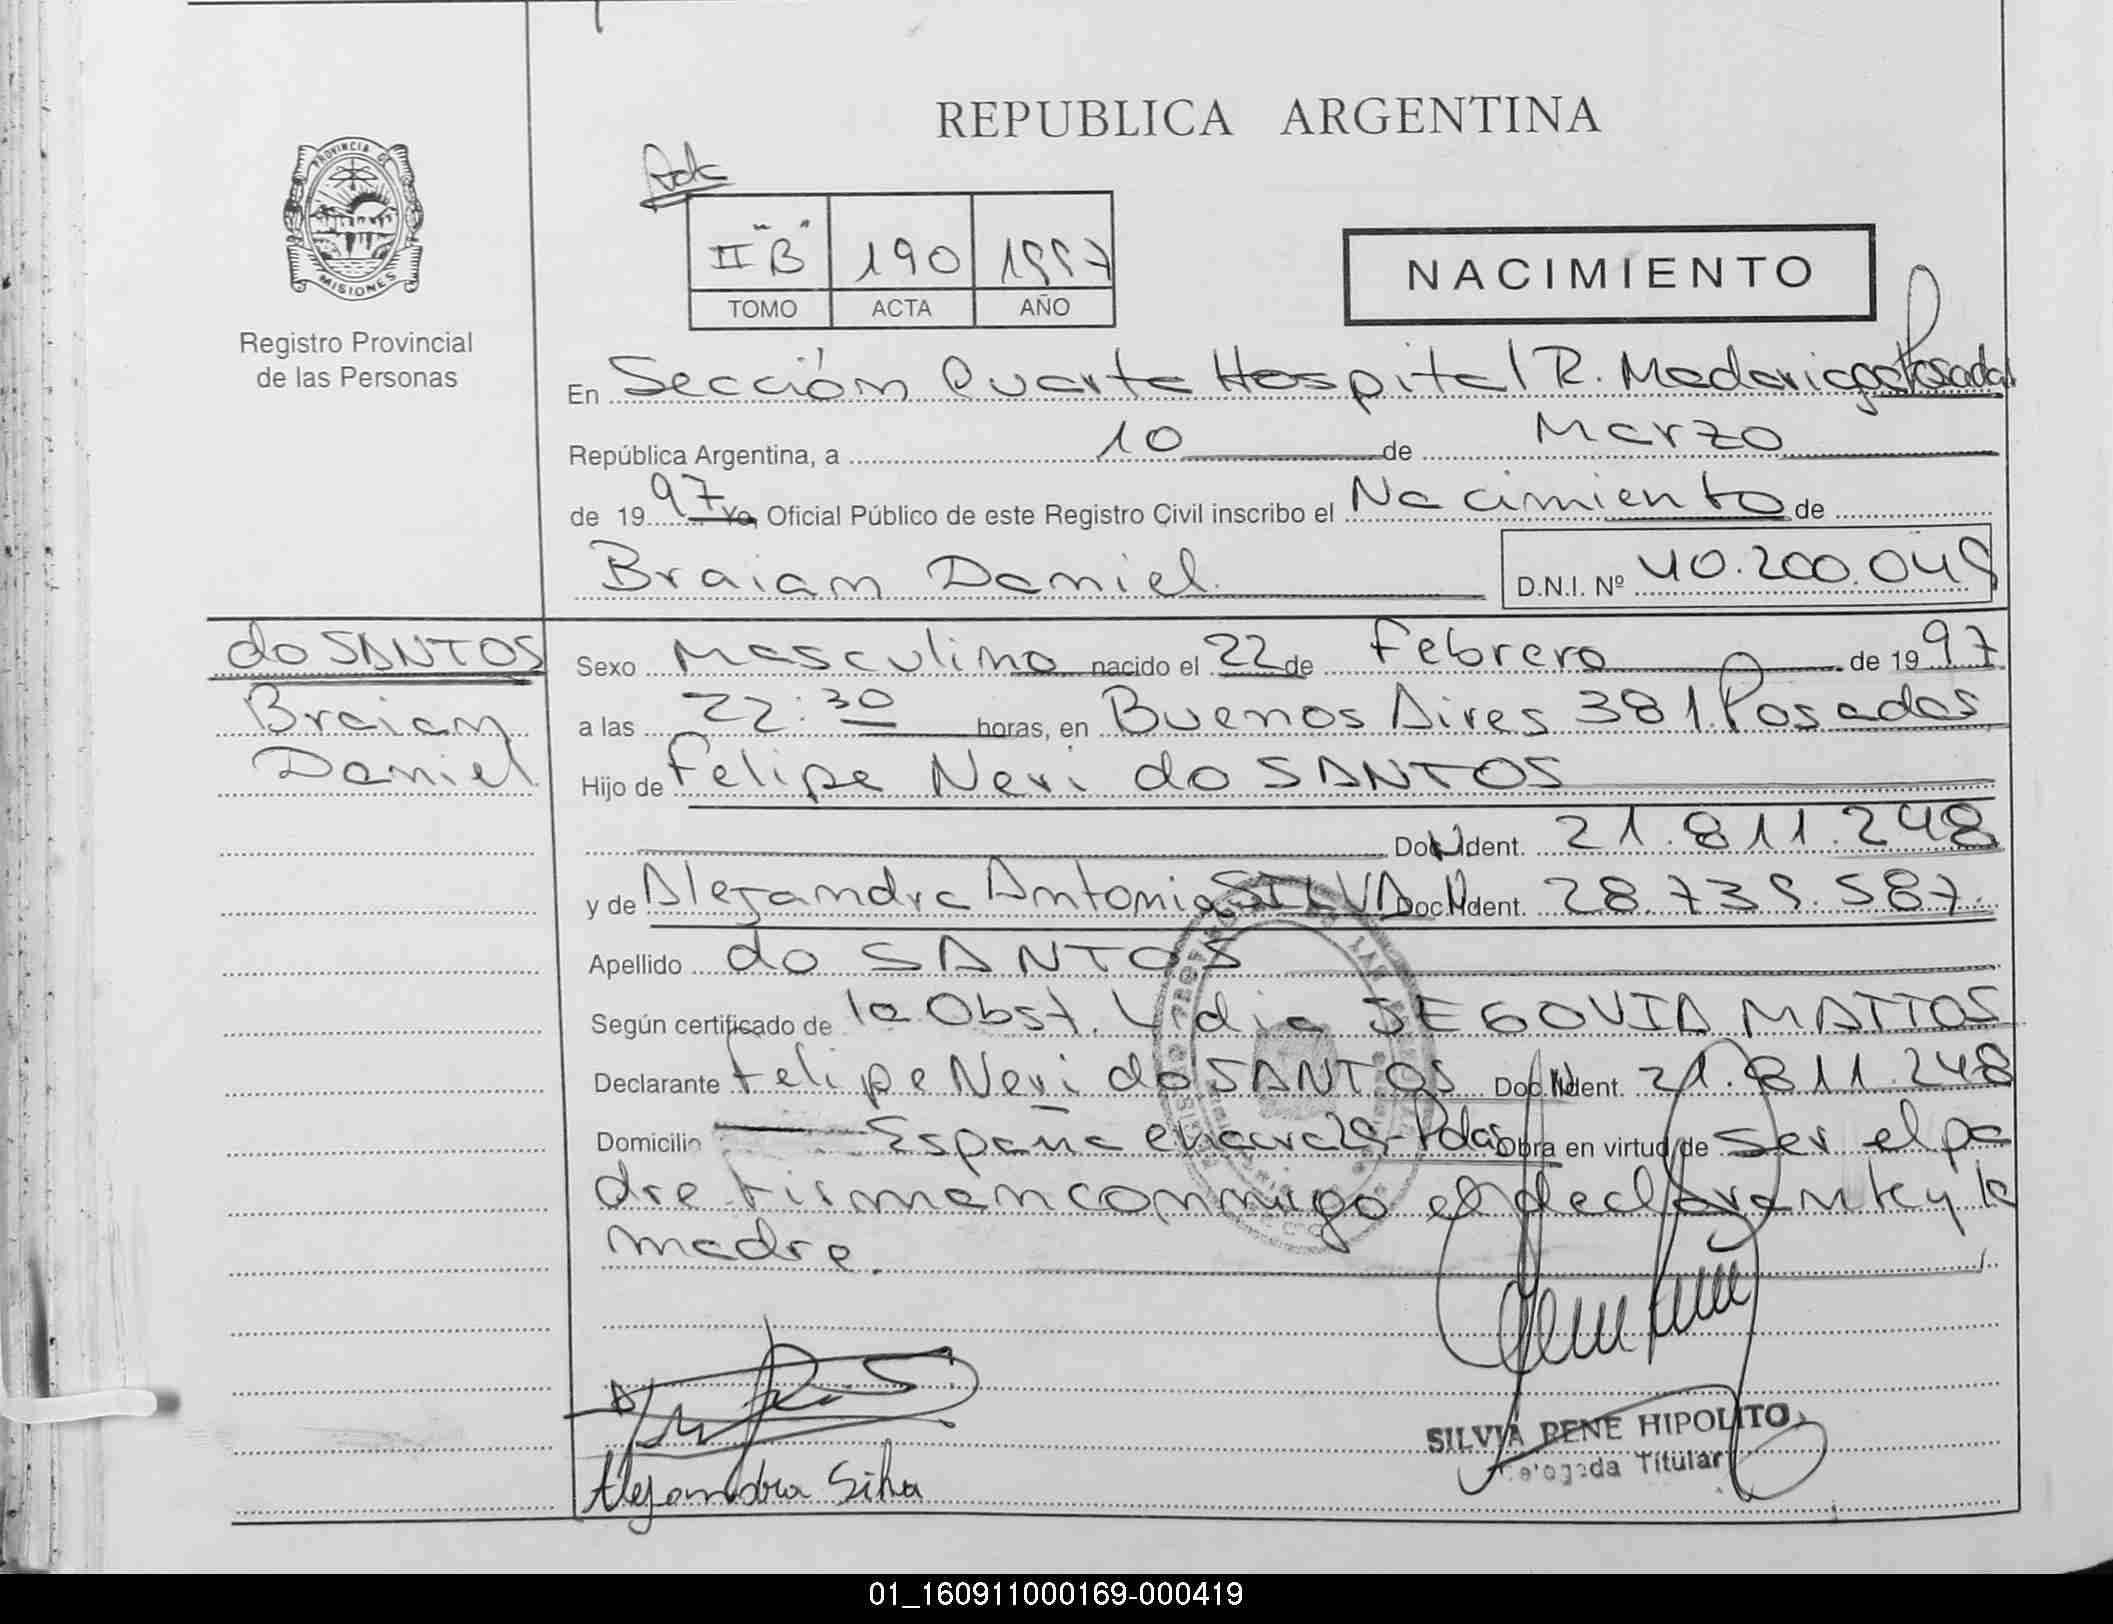 REPUBLICA ARGENTINA
PROVINCIA DE
MISIONES
Registro Provincial
de las Personas
II "B" 190 1997
TOMO ACTA AÑO
NACIMIENTO
En Sección Cuarta Hospital R. Madariaga Posadas
República Argentina, a 10 de Marzo
de 1997 Yo, Oficial Público de este Registro Civil inscribo el Nacimiento de
Braian Daniel D.N.I. Nº 40.200.049
do SANTOS
Braian
Daniel
Sexo Masculino nacido el 22 de Febrero de 1997
a las 22:30 horas, en Buenos Aires 381. Posadas
Hijo de Felipe Neri do SANTOS
Doc. Ident. 21.811.248
y de Alejandra Antonia SILVA Doc. Ident. 28.739.587.
Apellido do SANTOS
Según certificado de la Obst. Lidia SEGOVIA MATTOS
Declarante Felipe Neri do SANTOS Doc. Ident. 21.811.248
Domicilio España Pdas Obra en virtud de ser el pa
dre firman conmigo el declarante y la
madre.
Alejandra Silva
SILVIA RENE HIPOLITO
Delegada Titular
01_160911000169-000419